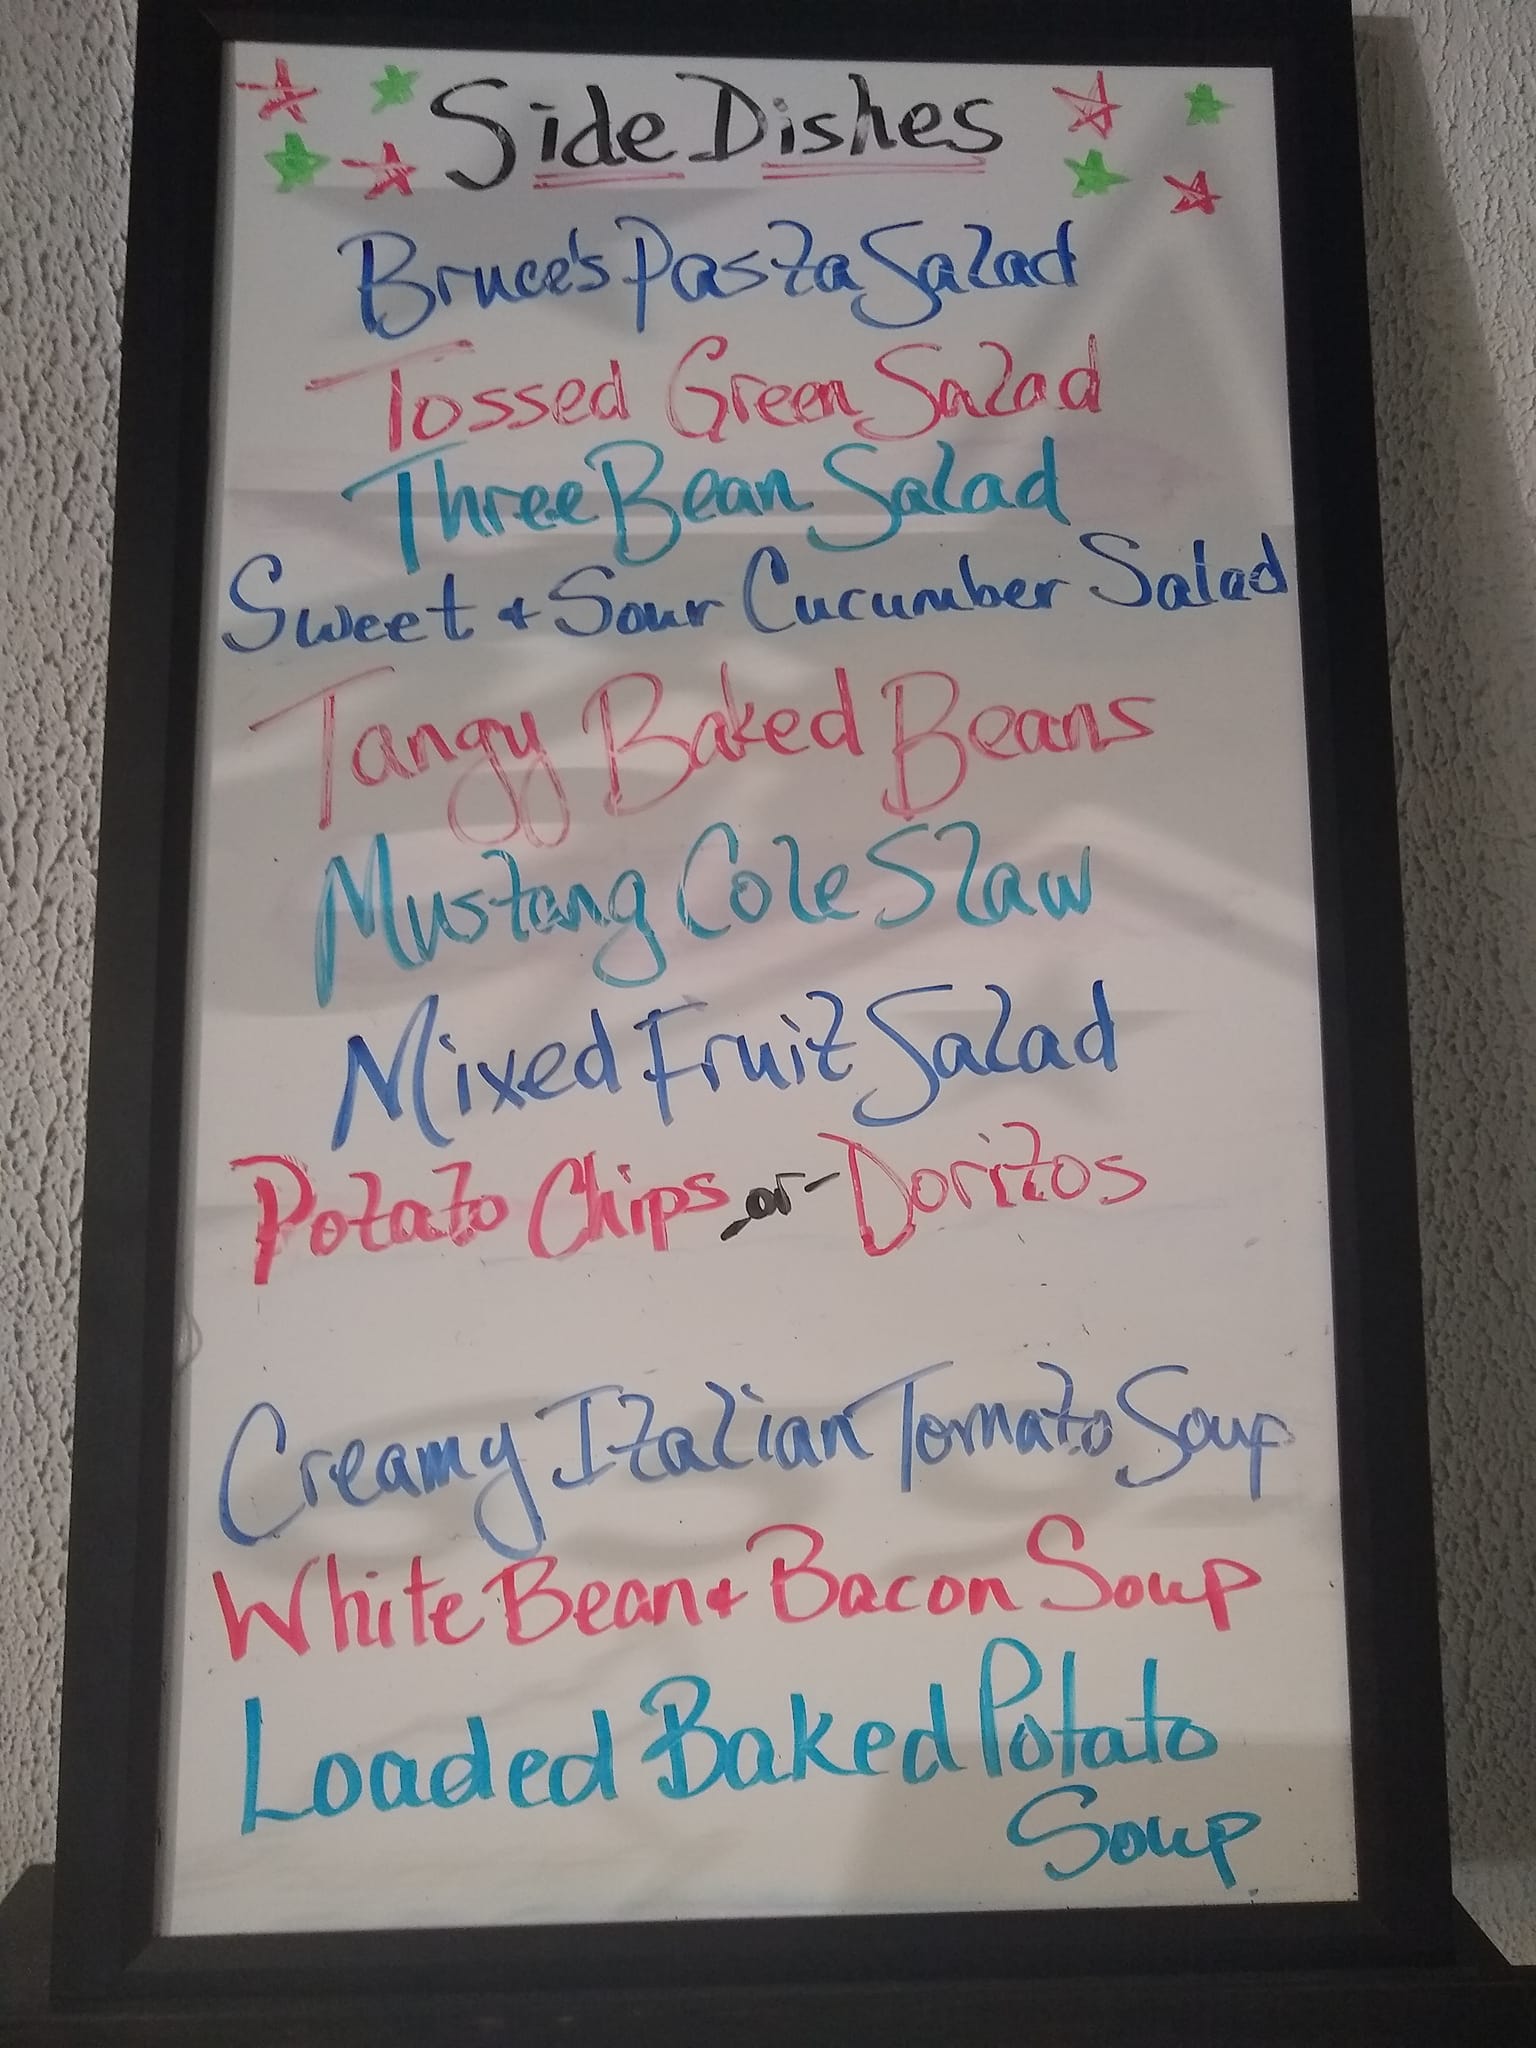 Side Dishes
Bruce's Pasta Salad
Tossed Green Salad
Three Bean Salad
Sweet & Sour Cucumber Salad
Tangy Baked Beans
Mustang Cole Slaw
Mixed Fruit Salad
Potato Chips -or- Doritos
Creamy Italian Tomato Soup
White Bean & Bacon Soup
Loaded Baked Potato
Soup